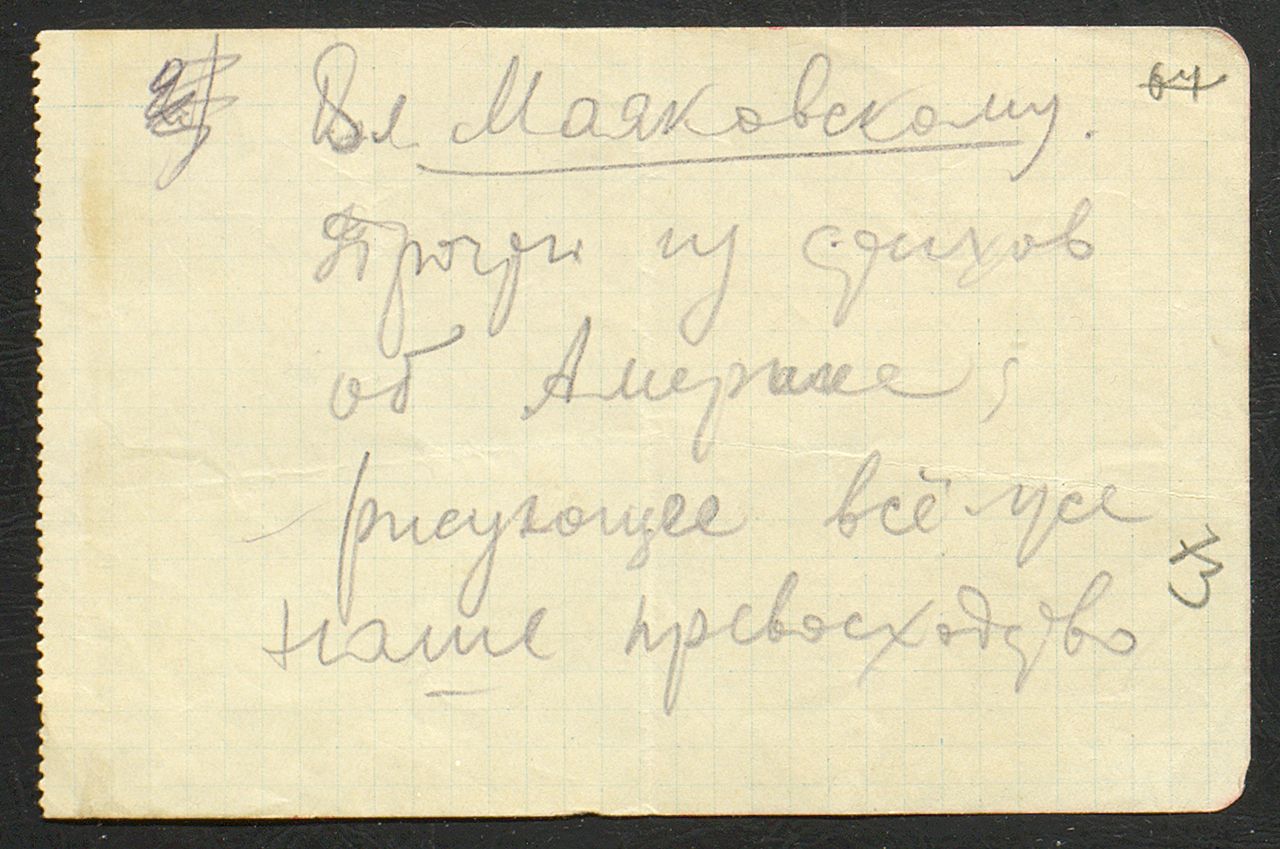 Вл Маяковскому.
64
Прочти из стихов
об Америке,
рисующее всё же
наше превосходство
73